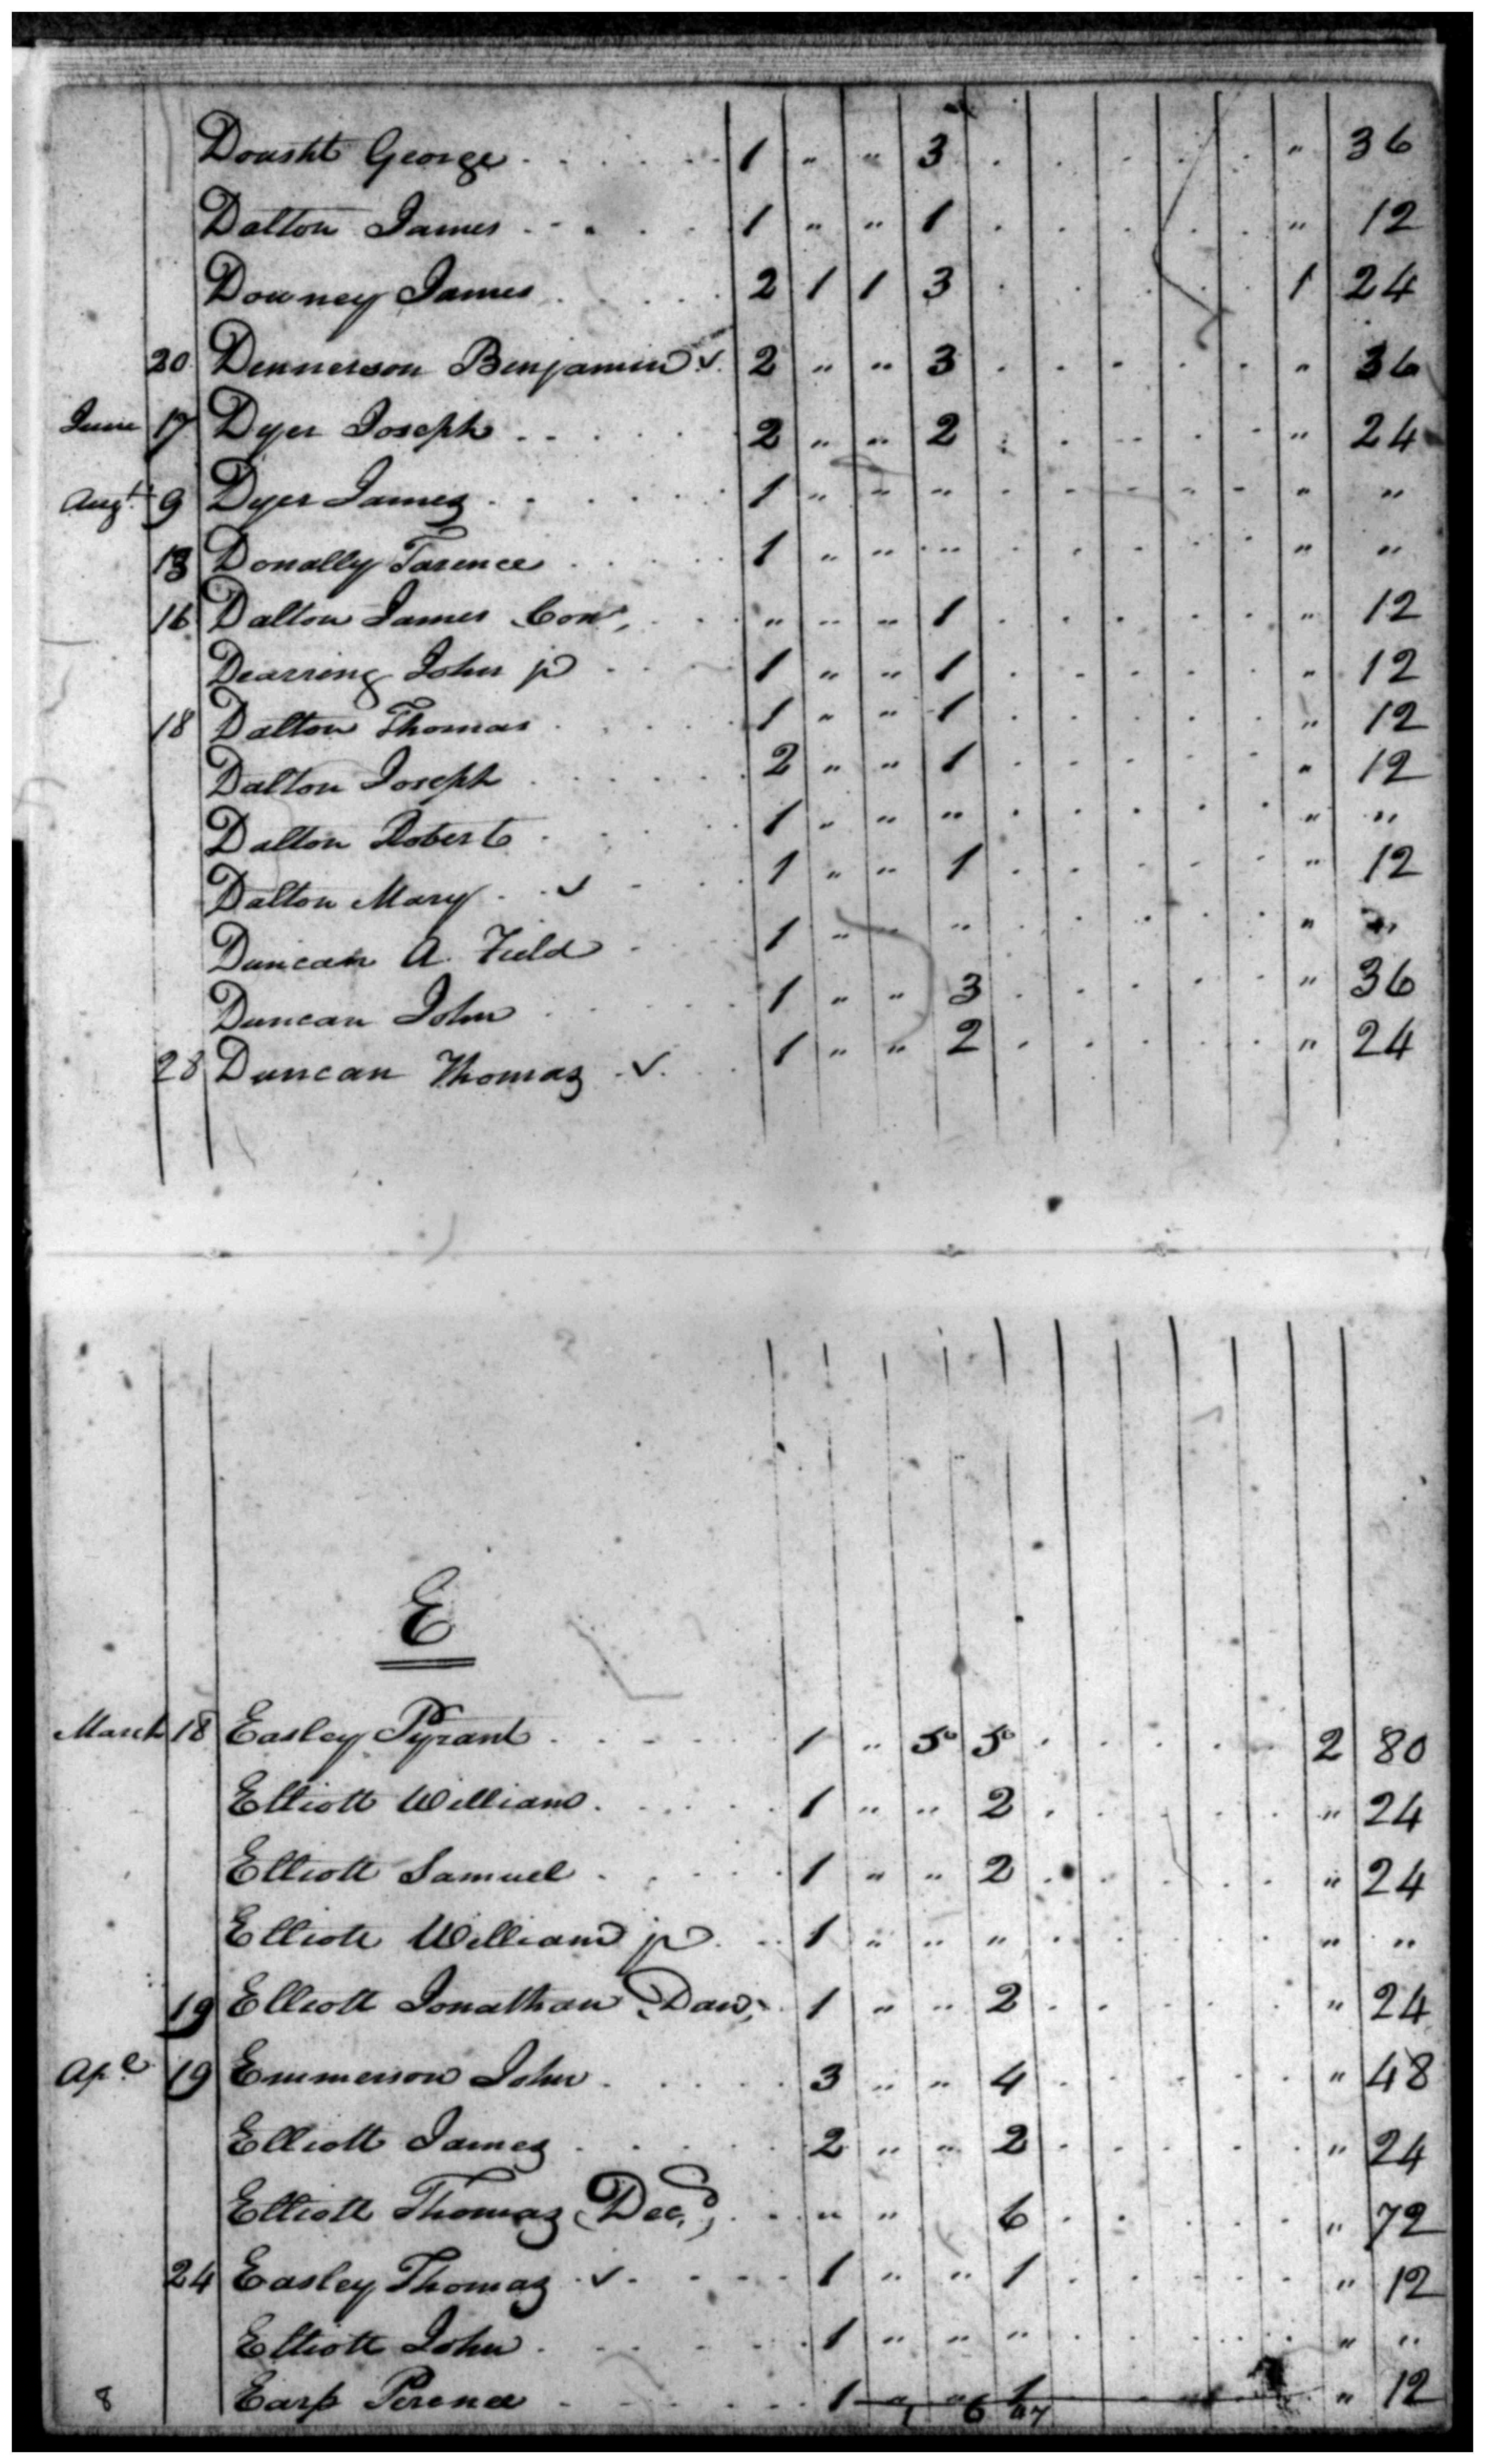 Dousht George . . . . . 1 " " 3 . . . . . " 36
Dalton James . . . . . 1 " " 1 . . . . . " 12
Downey James . . . . . 2 1 1 3 . . . . . 1 24
20 Dennerson Benjamin ✓ 2 " " 3 . . . . . " 36
June 17 Dyer Joseph . . . . . 2 " " 2 . . . . . " 24
Augt. 9 Dyer James . . . . . 1 " " " . . . . . " "
13 Donally Tarence . . . . 1 " " " . . . . . " "
16 Dalton James Con, . . . " " " 1 . . . . . " 12
Dearring John jr . . . 1 " " 1 . . . . . " 12
18 Dalton Thomas . . . . 1 " " 1 . . . . . " 12
Dalton Joseph . . . . . 2 " " 1 . . . . . " 12
Dalton Robert . . . . 1 " " " . . . . . " "
Dalton Mary . ✓ . . . 1 " " 1 . . . . . " 12
Duncan A. Field . . . 1 " " " . . . . . " "
Duncan John . . . . . 1 " " 3 . . . . . " 36
28 Duncan Thomas . ✓ . . 1 " " 2 . . . . . " 24
E
March 18 Easley Pyrant . . . . . 1 " 5 5 . . . . . 2 80
Elliott William . . . . . 1 " " 2 . . . . . " 24
Elliott Samuel . . . . . 1 " " 2 . . . . . " 24
Elliott William jr . . 1 " " " . . . . . " "
19 Elliott Jonathan (Dan, . 1 " " 2 . . . . . " 24
Apl 19 Emmerson John . . . . 3 " " 4 . . . . . " 48
Elliott James . . . . . 2 " " 2 . . . . . " 24
Elliott Thomas (Decd,) . . " " 6 . . . . . " 72
24 Easley Thomas . ✓ . . . . 1 " " 1 . . . . . " 12
Elliott John . . . . . 1 " " " . . . . . " "
8 Earp Perona . . . . . 1 " " 1 " 12
1 6 47